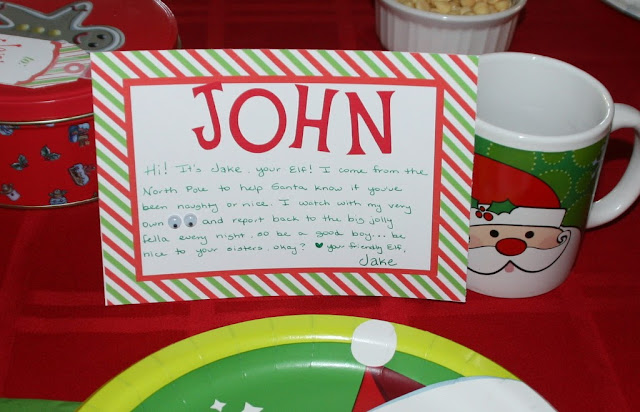 JOHN
Hi! It's Jake, your Elf! I come from the
North Pole to help Santa know if you've
been naughty or nice. I watch with my very
own and report back to the big jolly
fella every night, so be a good boy... be
nice to your sisters, okay? ♥ your friendly Elf,
Jake